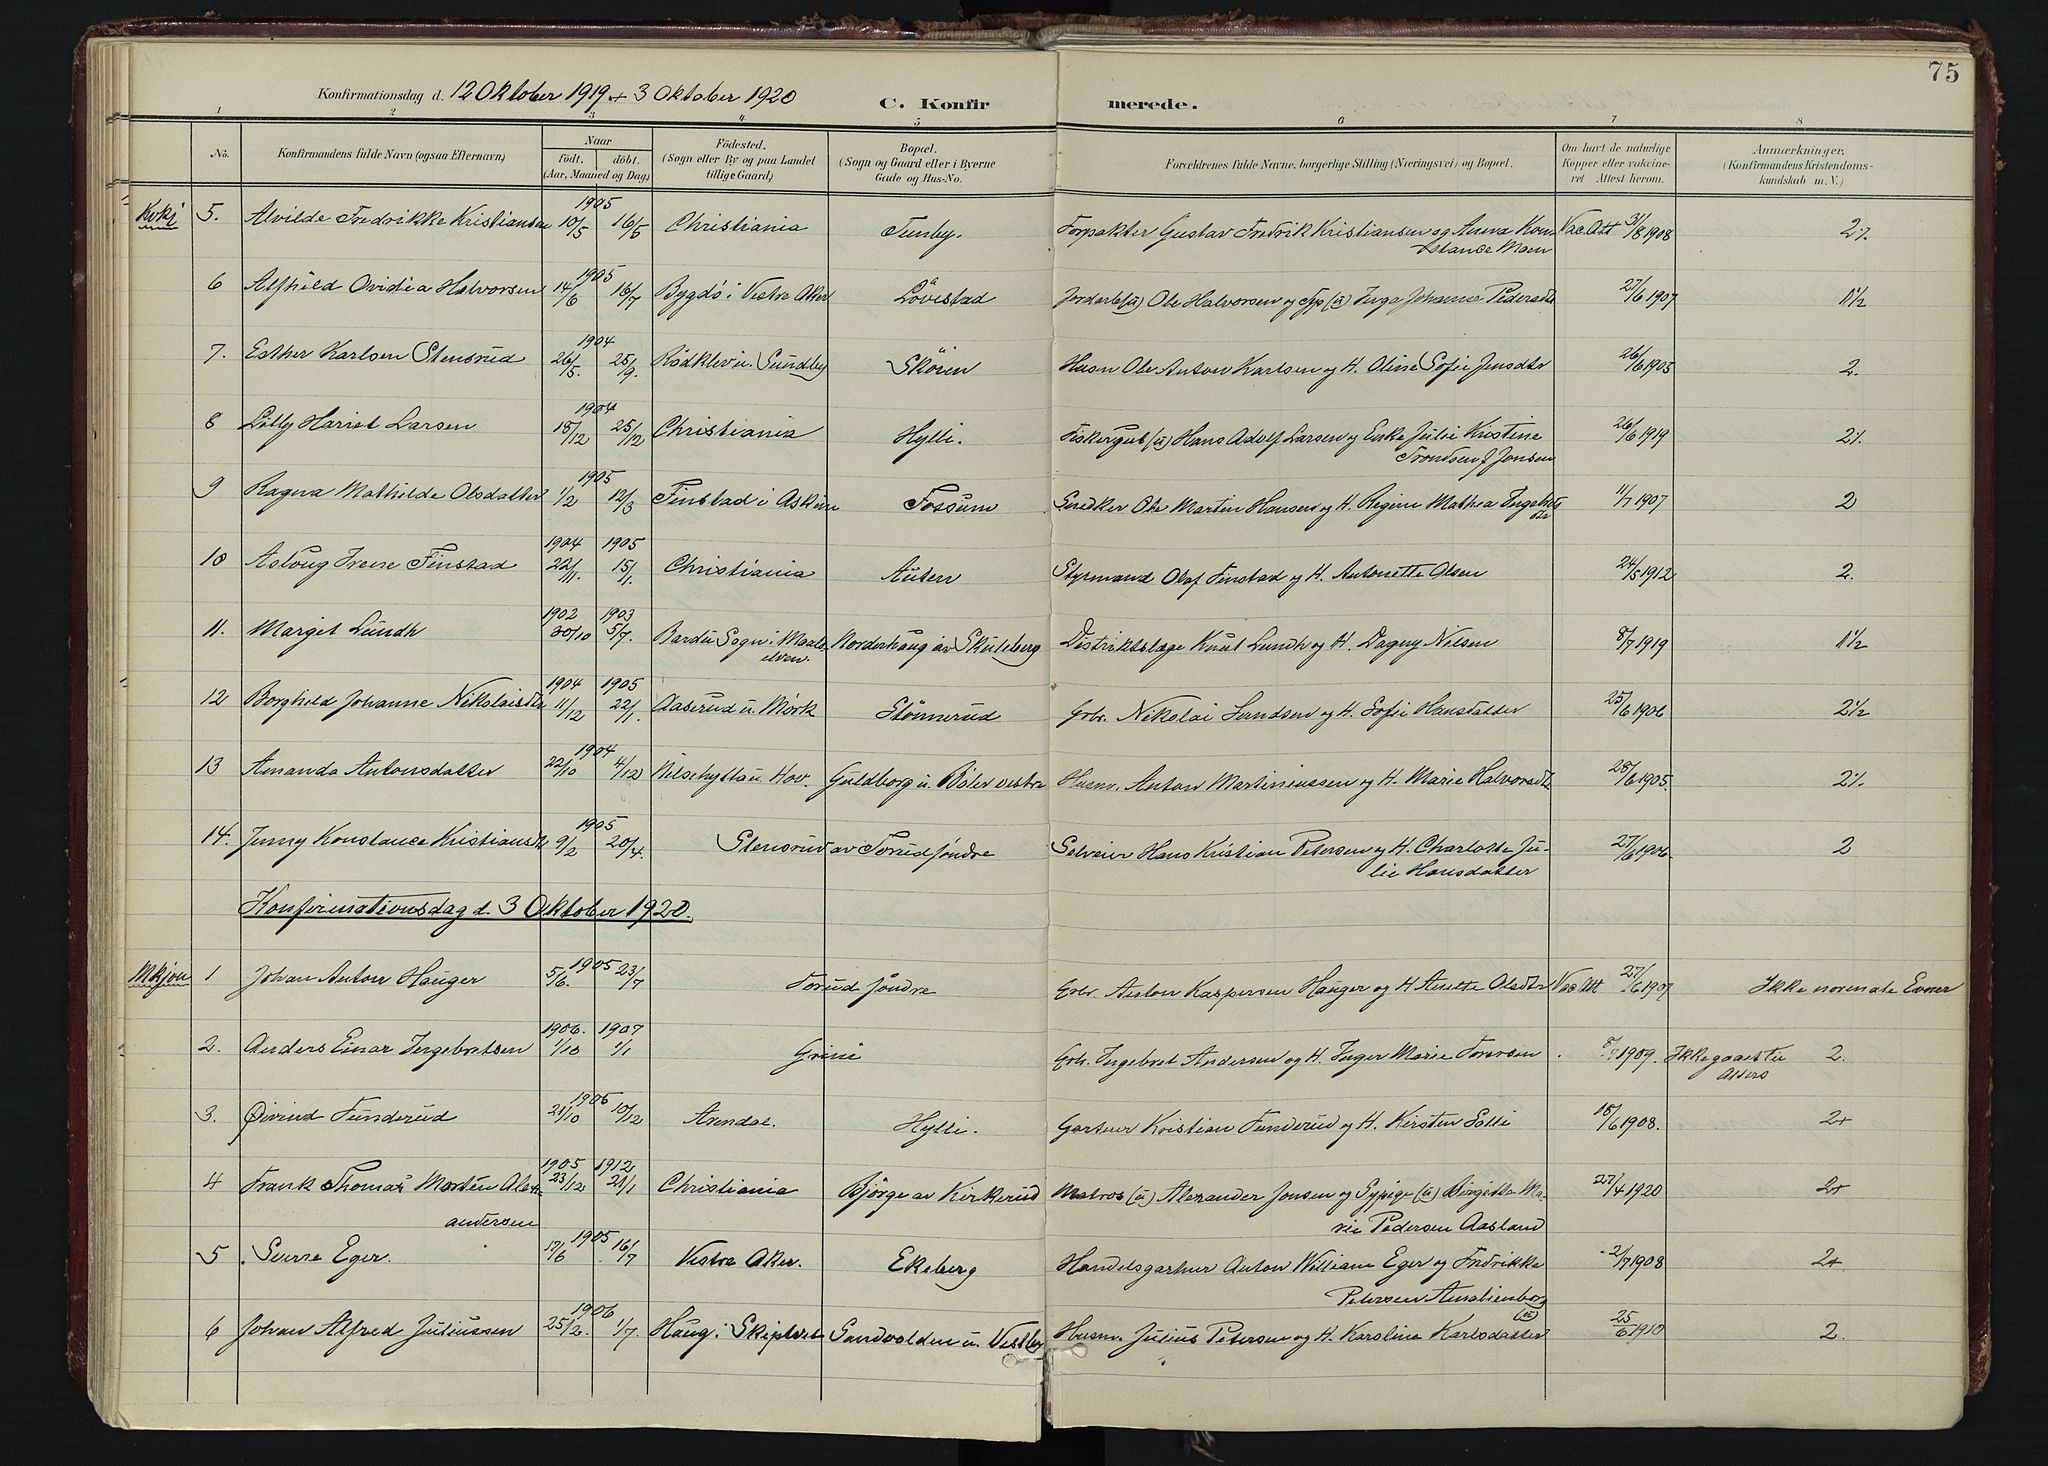 75
Konfirmationsdag d. 12 Oktober 1919 + 3 Oktober 1920 C. Konfirmerede.
1 2 3 4 5 6 7 8
No. Konfirmandens fulde Navn (ogsaa Efternavn) Naar födt. döbt. (Aar, Maaned og Dag) Födested. (Sogn eller By og paa Landet tillige Gaard) Bopæl. (Sogn og Gaard eller i Byerne Gade og Hus-No. Forældrenes fulde Navne, borgerlige Stilling (Næringsvei) og Bopæl. Om havt de naturlige Kopper eller vakcineret Attest herom. Anmærkninger. (Konfirmandens Kristendomskundskab m. V.)
Kvkj 5. Alvilde Fredrikke Kristiansen 1905 10/5 16/5 Christiania Tenby. Forpakter Gustav Fredrik Kristiansen og Anna Konstance Moen Vac. Att 31/8 1908 2%
6 Alfhild Ovidia Halvorsen 1905 14/6 16/7 Bygdö i Vestre Aker Lövestad Jordarb (u) Ole Halvorsen og Typ (u) Inga Johanne Pedersdt 27/6 1907 1 1/2
7. Esther Karlsen Stensrud 1904 26/5. 25/9. Rödklev u. Sundby Sköien Husm Ole Anton Karlsen og H. Oline Sofie Jensdtr 26/6 1905 2.
8 Lilly Hariet Larsen 1904 18/12 25/12 Christiania Hylli. Fiskergut (u) Hans Adolf Larsen og Enke Julie Kristine Trondsen f Jonsen 26/6 1919 2%
9 Ragna Mathilde Olsdatter 1905 1/2 12/3 Finstad i Askim Fossum Snedker Ole Martin Hansen og H. Regine Mathea Ingebrdtr 11/7 1907 2
10 Aslaug Irene Finstad 1904 22/11. 1905 15/1. Christiania Auten Styrmand Olaf Finstad og H. Antonette Olsen 24/5 1912 2.
11. Margit Lundh 1902 30/10 1903 5/7. Bardu Sogn i Maalselven. Norderhaug av Skuleberg Distriktslæge Knut Lundh og H. Dagny Nilsen 8/7 1919 1 1/2
12 Borghild Johanne Nikolaisdtr 1904 11/12 1905 22/1. Aaserud u. Mörk Stömnerud Grbr. Nikolai Svendsen og H. Sofie Hansdatter 25/6 1906 2 1/2
13 Amanda Antonsdatter 1904 22/10 4/12 Nilsehytta u. Hov. Guldborg u. Böler vestre Husm. Anton Martiniussen og H. Marie Halvorsdtr 28/6 1905. 2%
14. Jenny Konstance Kristiansdtr 1905 9/2 20/4. Stensrud av Torud söndre Selveier Hans Kristian Petersen og H. Charlotte Julie Hansdatter 27/6 1906. 2
Konfirmationsdag d. 3 Oktober 1920.
Mkjön 1 Johan Anton Hauger 1905 5/6. 23/7 Torud söndre Grbr. Anton Kaspersen Hauger og H Anette Olsdtr Vac Att 27/6 1907 Ikke normale Evner
2. Anders Einar Ingebretsen 1906. 1/10 1907 1/1 Grini Grbr. Ingebret Andersen og H. Inger Marie Torersen 1909. Ikke gaaet til Alters 2.
3. Øivind Tunderud 1905 21/10 10/12 Arendal. Hylli. Gartner Kristian Tunderud og H. Kirsten Solli 18/6 1908. 2+
4 Frank Thomas Morten Alexandersen 1905 23/12 1912 21/1 Christiania Björge av Kirkerud Matros (u) Alexander Jonsen og Sypige (u) Birgitta Marie Pedersen Aasland 27/4 1920 2+
5 Sverre Eger. 1905 17/6 16/7 Vestre Aker. Ekeberg Handelsgartner Anton William Eger og Fredrikke Petersen Amalienborg 2/7 1908 2+
6 Johan Alfred Juliussen 1906 25/2. 1/7 Haug i Skiptvet Sandvolden u. Vestby Husm. Julius Petersen og H. Karoline Karlsdatter 25/6 1910 2.